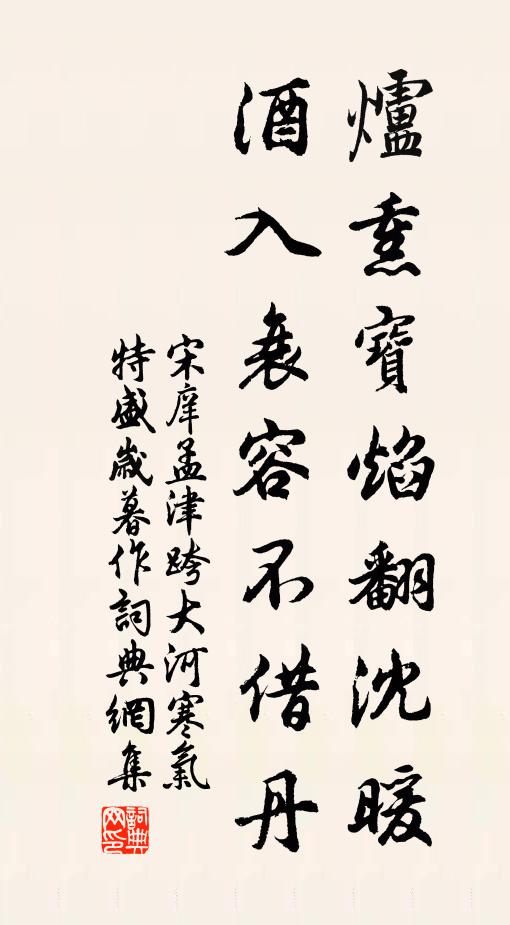 爐熏寶焰翻沈暖
酒入衰容不借丹
宋庠孟津跨大河寒氣
特盛歲暮作詞典網集
詞典網印